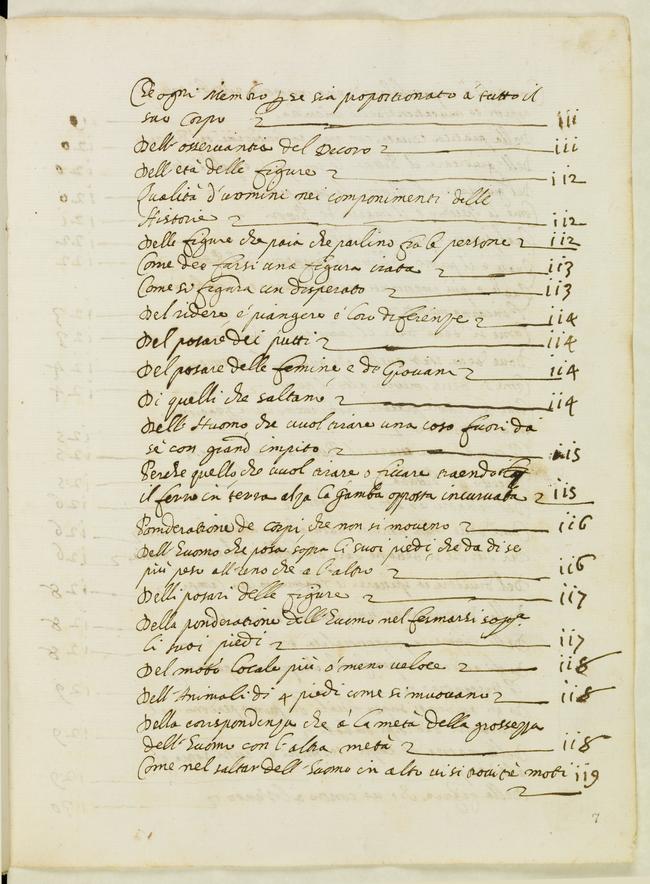 Che ogni Membro p se sia proportionato a' tutto il
suo Corpo 111
Dell'osservantia del Decoro 111
Dell'età delle figure 112
Qualità d'uomini nei componimenti delle
Historie 112
Delle figure che paia che parlino fra le persone 112
Come dee farsi una figura irata 113
Come si figura un disperato 113
Del ridere é piangere é loro diferenze 114
Del posare dei putti 114
Del posare delle femine e de Giovani 114
Di quelli che saltano 114
Dell'Huomo che vuol tirare una cosa fuori da
sè con grand impito 115
Perche quello che vuol tirare o ficare traendo
il ferro in terra alza la gamba opposta incurvata 115
Ponderatione de corpi che non si moveno 116
Dell'Euomo che posa sopra li suoi piedi, che da di se
più peso all'uno che a l'altro 116
Delli posari delle figure 117
Della ponderatione dell'Euomo nel fermarsi sopra
li suoi piedi 117
Del moto locale più ò meno veloce 118
Dell'Animali di 4 piedi come si muovano 118
Della corispondenza che á la metà della grossezza
dell'Euomo con l'altra metà 118
Come nel saltar dell'Euomo in alto vi si trovi tè moti 119
7